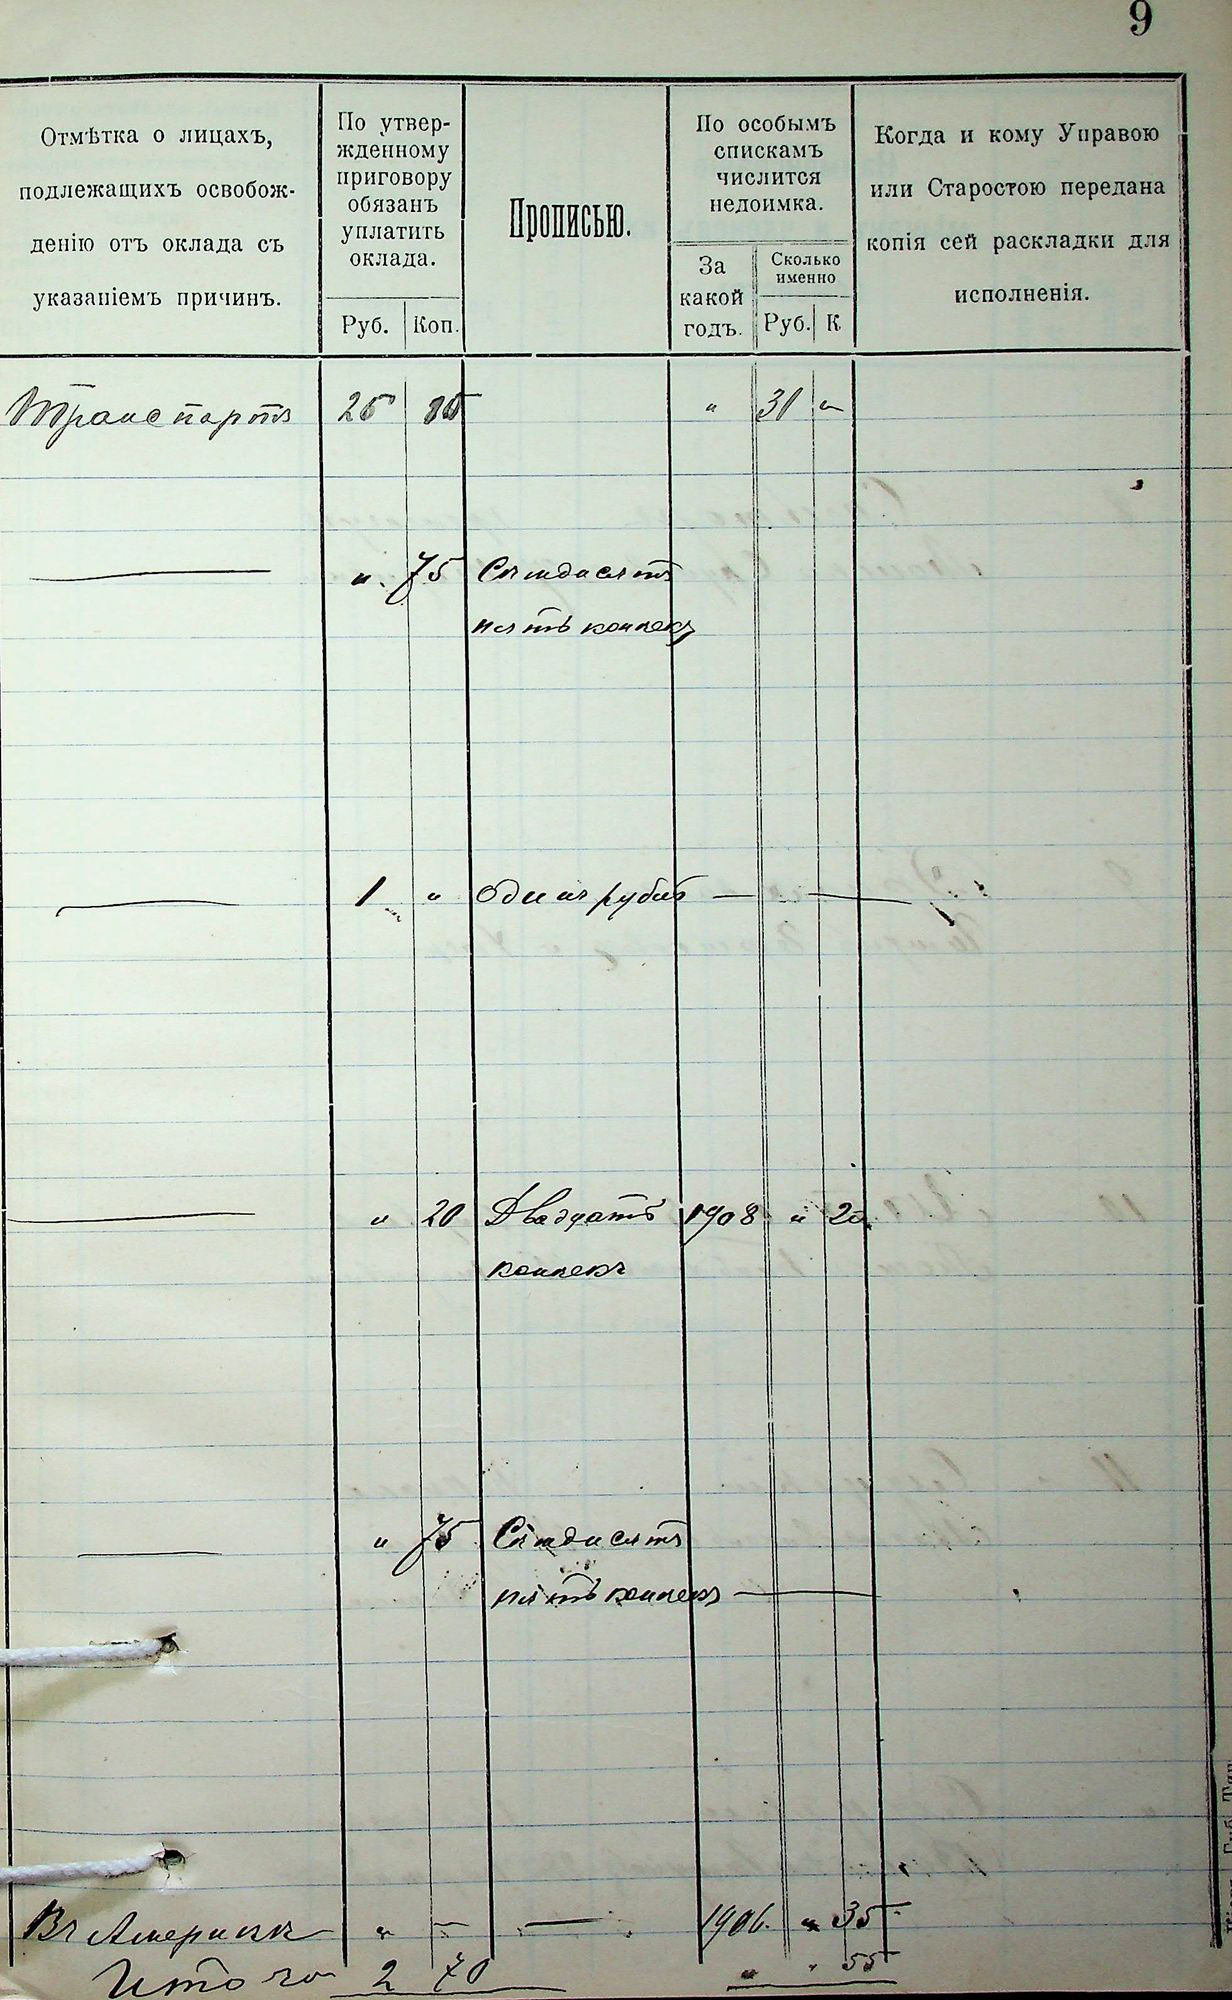 9
Отмѣтка о лицахъ,
подлежащихъ освобож-
денію отъ оклада съ
указаніемъ причинъ.
По утвер-
жденному
приговору
обязанъ
уплатить
оклада.
Руб. Коп.
Прописью.
По особымъ
спискамъ
числится
недоимка.
За
какой
годъ.
Сколько
именно
Руб. К
Когда и кому Управою
или Старостою передана
копія сей раскладки для
исполненія.
Транспортъ 25 " 31 "
" 75 Семьдесятъ
пять копѣекъ
1 " Одинъ рубль —
" 20 Двадцать 1908 " 20
копѣекъ
" 75 Семьдесятъ
пять копѣекъ —
Въ Америкѣ " — — 1906 " 35
Итого 2 70 " " 55